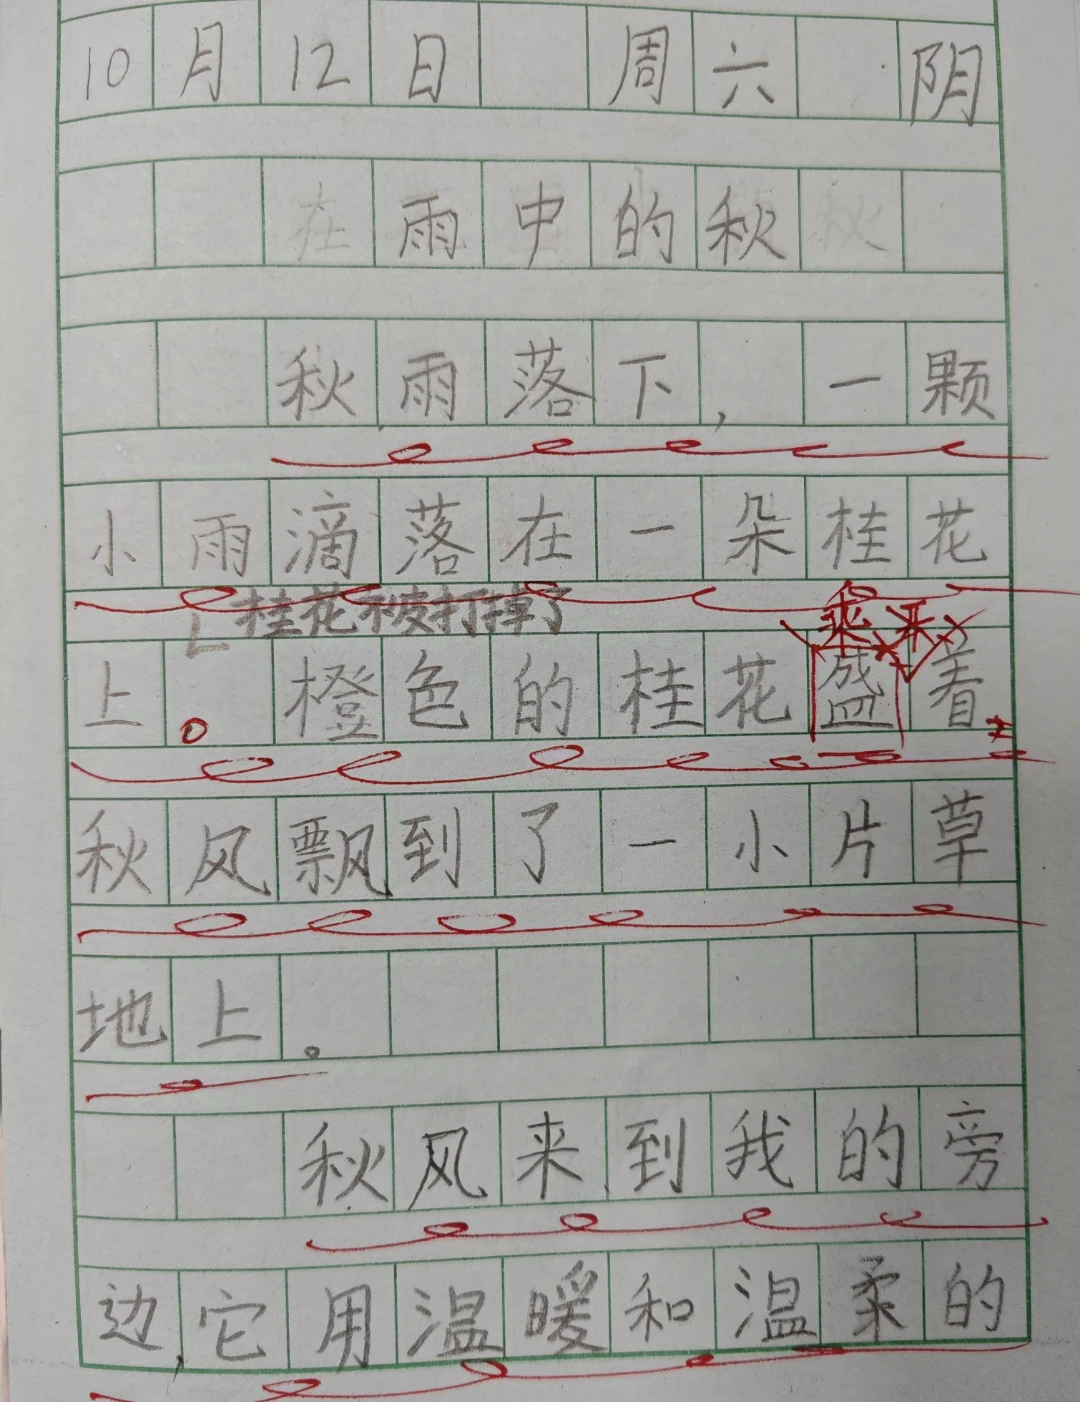 10月12日 周六 阴
雨中的秋
秋雨落下，一颗
小雨滴落在一朵桂花
桂花被打掉了
上。橙色的桂花盛着
乘
秋风飘到了一小片草
地上。
秋风来到我的旁
边，它用温暖和温柔的